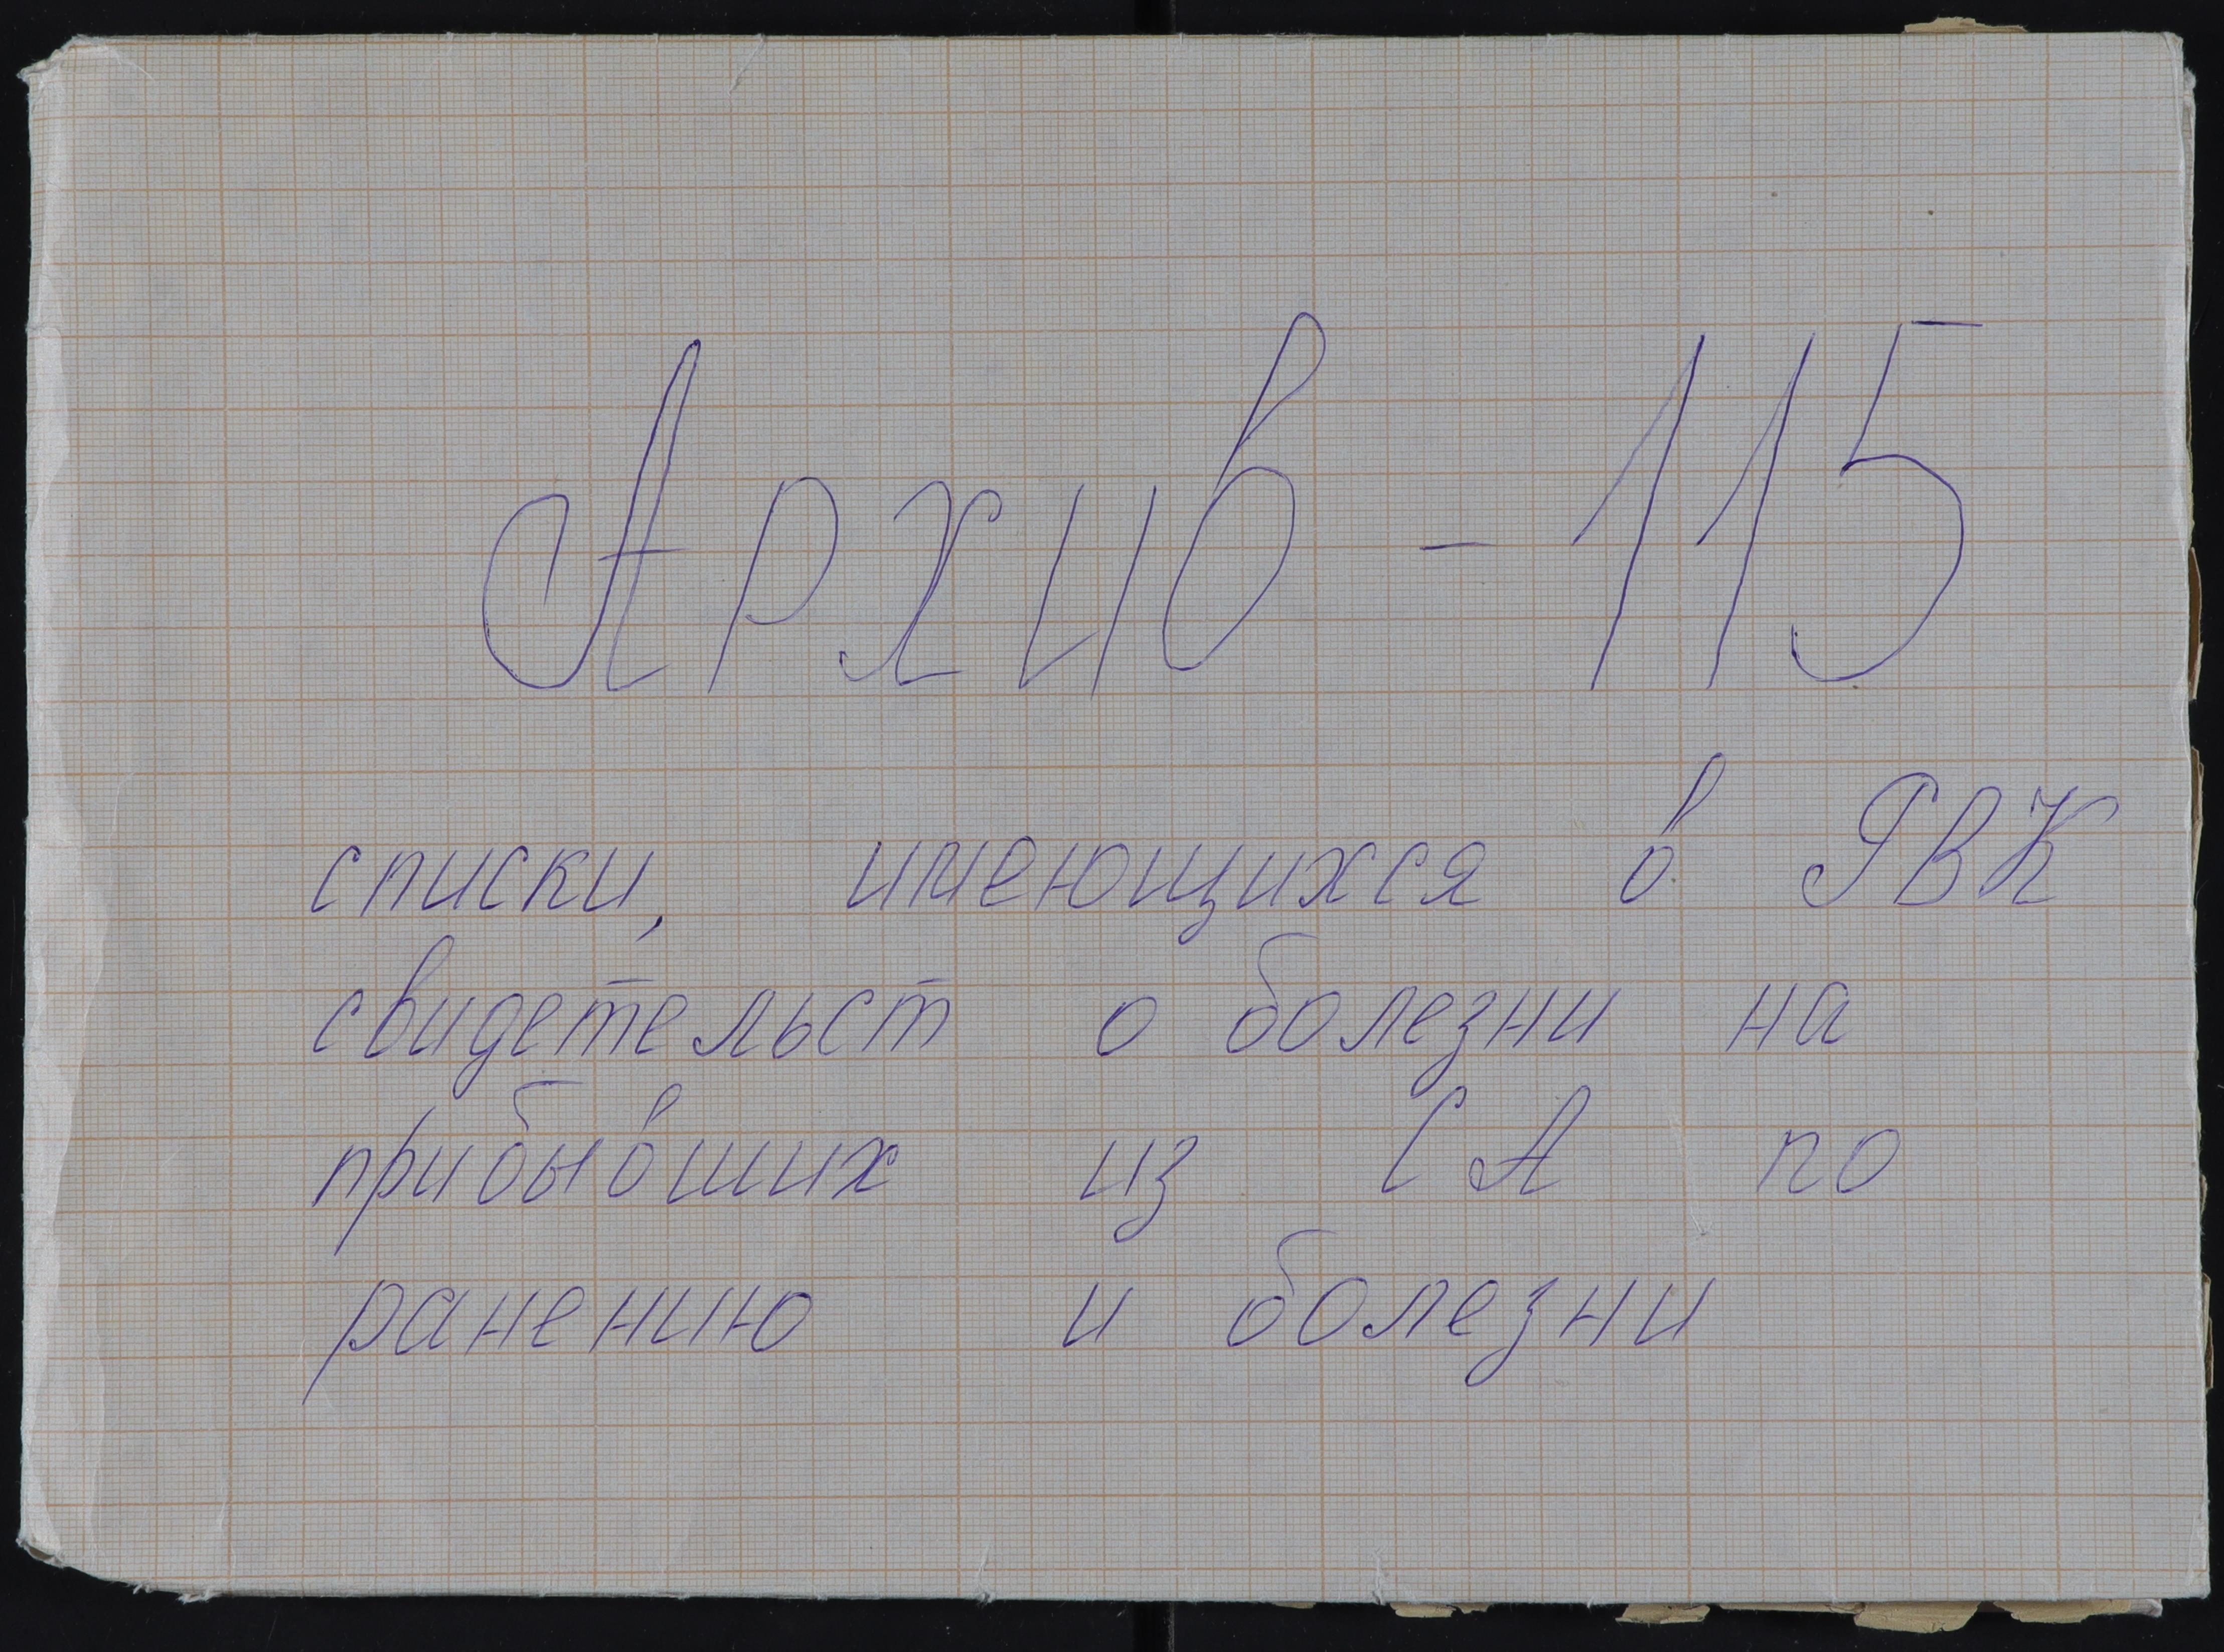 Архив - 115
списки, имеющихся в РВК
свидетельст о болезни на
прибывших из СА по
ранению и болезни